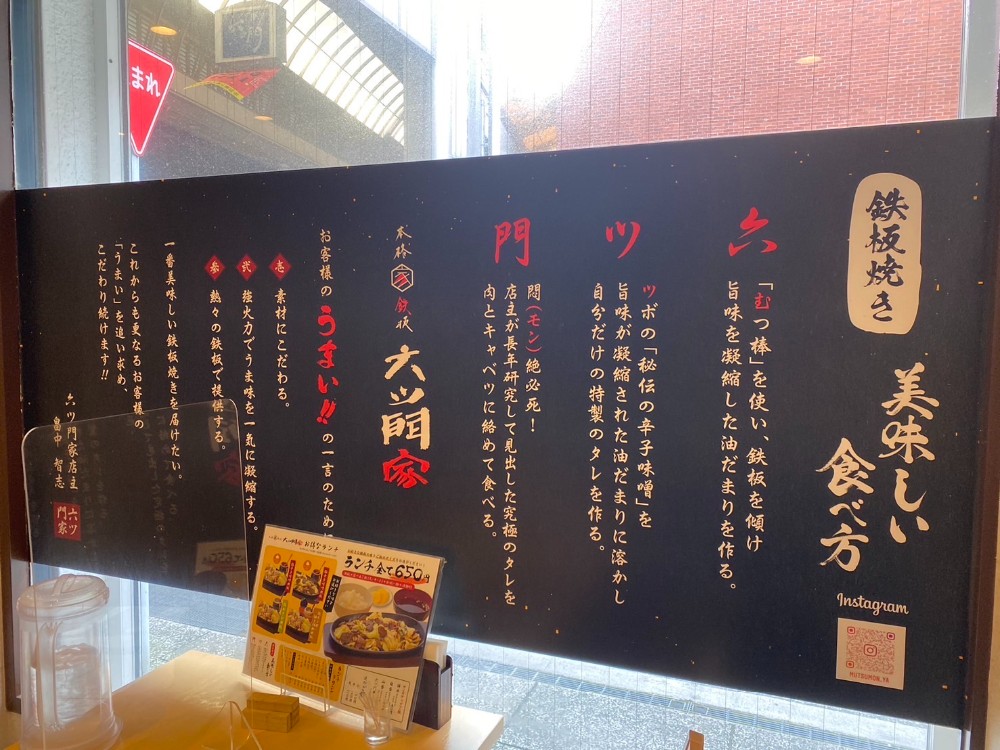 鉄板焼き
美味しい
食べ方
六
「むつ棒」を使い、鉄板を傾け
旨味を凝縮した油だまりを作る。
ツ
ツボの「秘伝の辛子味噌」を
旨味が凝縮された油だまりに溶かし
自分だけの特製のタレを作る。
門
悶(モン)絶必死!
店主が長年研究して見出した究極のタレを
肉とキャベツに絡めて食べる。
本格 鉄板
六ツ門家
お客様のうまい!!の一言のため
壱 素材にこだわる。
弐 強火力でうま味を一気に凝縮する。
参 熱々の鉄板で提供する。
一番美味しい鉄板焼きを届けたい。
これからも更なるお客様の
「うまい」を追い求め、
こだわり続けます!!
六ツ門家店主
畠中 智志
六ツ
門家
Instagram
MUTSUMON.YA
まれ
お得なランチ
ランチ全て650円